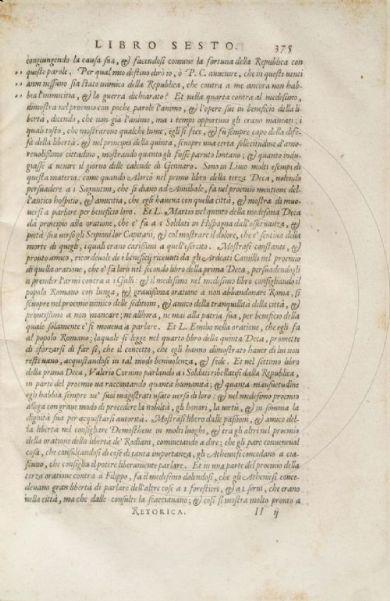 LIBRO SESTO. 375
congiungendo la causa sua, & facendosi comune la fortuna della Republica con
queste parole. Per qual mio destino dirò io, ò P. C. auuiene, che in questi uenti
anni nessuno sia stato nimico della Republica, che contra a me ancora non hab-
bia l'inimicitia, & la guerra dichiarato? Et nella quarta contra al medesimo,
dimostra nel proemio con poche parole l'animo, & l'opere sue in beneficio della li-
bertà, dicendo, che non già l'animo, ma i tempi opportuni gli erano mancati: i
quali tosto, che mostrarono qualche lume, egli si fece, & fu sempre capo della dife-
sa della libertà: & nel principio della quinta, scuopre una certa sollecitudine d'amo-
reuolissimo cittadino, mostrando quanto gli fusse paruto lontano; & quanto indu-
giasse a uenire il giorno delle calende di Gennaro. Sono in Liuio molti esempi di
questa materia: come quando Alorco nel primo libro della terza Deca, uolendo
persuadere a i Saguntini, che si diano ad Annibale, fa nel proemio mentione del-
l'antico hospitio, & amicitia, che egli haueua con quella città, & mostra di muo-
uersi a parlare per beneficio loro. Et L. Martio nel quinto della medesima Deca
da principio alla oratione, che e' fa a i Soldati in Hispagna dall'osseruanza, &
pietà sua uerso gli Scipioni lor Capitani, & col mostrare il dolore, che e' sentiua della
morte di quegli, i quali erano carissimi a quell'esercito. Mostrasi constante, &
pronto amico, ricordeuole de i beneficij riceuuti da gli Ardeati Camillo nel proemio
di quella oratione, che e' fa loro nel secondo libro della prima Deca, persuadendogli
a prender l'armi contra a i Galli: & il medesimo nel medesimo libro consigliando il
popolo Romano con lunga, & grauissima oratione a non abbandonare Roma, si
scuopre nel proemio nimico delle seditioni, & amico della tranquillità della città, &
prontissimo a non mancare; ne allhora, ne mai alla patria sua, per beneficio della
quale solamente e' si moueua a parlare. Et L. Emilio nella oratione, che egli fa
al popolo Romano; laquale si legge nel quarto libro della quinta Deca, promette
di sforzarsi di far sì, che il concetto, che egli hanno dimostrato hauer di lui non
resti uano, acquistandosi in tal modo beniuolenza, & fede. Et nel settimo libro
della prima Deca, Valerio Coruino parlando a i Soldati ribellatisi dalla Republica,
in parte del proemio ua raccontando quanta humanità; & quanta mansuetudine
egli habbia sempre ne' suoi magistrati usato uerso di loro; & nel medesimo proemio
allega con graue modo di procedere la nobiltà, gli honori, la uertù, & in somma la
dignità sua per acquistarsi autorità. Mostrasi libero dalle passioni, & amico del-
la libertà nel consigliare Demosthene in molti luoghi, & tra gli altri nel proemio
della oratione della libertà de' Rodiani, cominciando a dire; che gli pare conueneuol
cosa, che consigliandosi di cose di tanta importanza, gli Atheniesi concedano a cia-
scuno, che consiglia il potere liberamente parlare. Et in una parte del proemio della
terza oratione contra a Filippo, fa il medesimo dolendosi, che gli Atheniesi conce-
deuano gran libertà di parlare dell'altre cose a i forestieri, & a i serui, che erano
nella città, ma che dalle consulte la scacciauano; & così si mostra molto pronto a
RETORICA. II ij